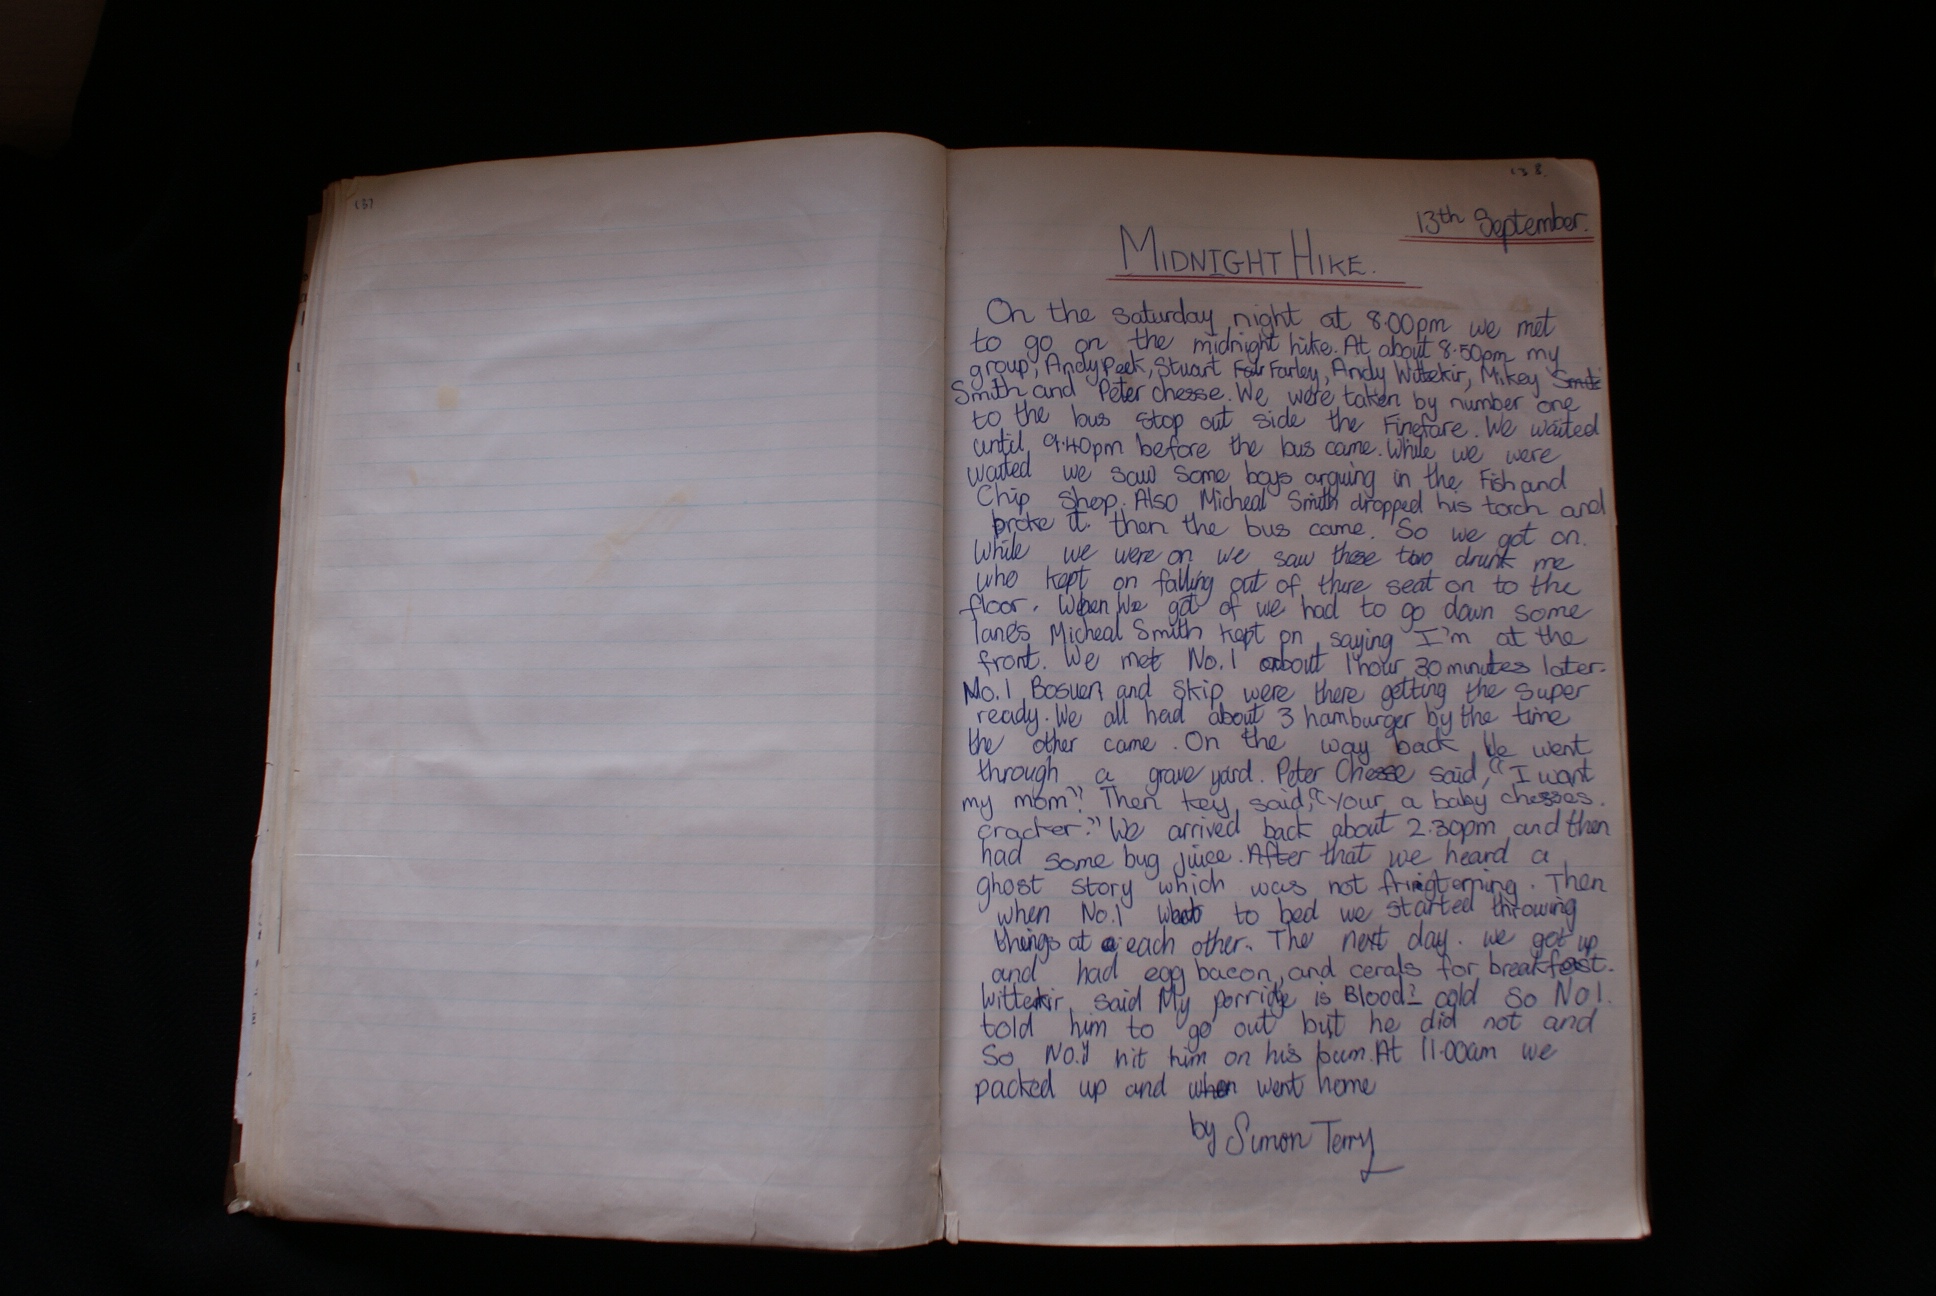 137
138.
13th September.
MIDNIGHT HIKE.
On the saturday night at 8.00pm we met
to go on the midnight hike. At about 8.50pm my
group, Andy Peek, Stuart Fair Farley, Andy Wittekir, Mikey Smite
Smith and Peter chesse. We were taken by number one
to the bus stop out side the Finefare. We waited
until 9.40pm before the bus came. While we were
waited we saw some boys arguing in the Fish and
Chip Shop. Also Micheal Smith dropped his torch and
broke it. then the bus came. So we got on.
While we were on we saw these two drunk me
who kept on falling out of there seat on to the
floor. When We got of we had to go down some
lanes Micheal Smith kept on saying I'm at the
front. We met No.1 about 1 hour 30 minutes later.
No.1 Bosuen and Skip were there getting the super
ready. We all had about 3 hamburger by the time
the other came. On the way back We went
through a grave yard. Peter Chesse said, "I want
my mom". Then key said, "Your a baby chesses
cracker." We arrived back about 2.30pm and then
had some bug juice. After that we heard a
ghost story which was not fringterning. Then
when No.1 went to bed we started throwing
things at a each other. The next day. we got up
and had egg bacon, and cerals for breakfast.
Wittekir said My porridge is Blood? cold so No1.
told him to go out but he did not and
so No.1 hit him on his bum. At 11.00am we
packed up and when went home
by Simon Terry